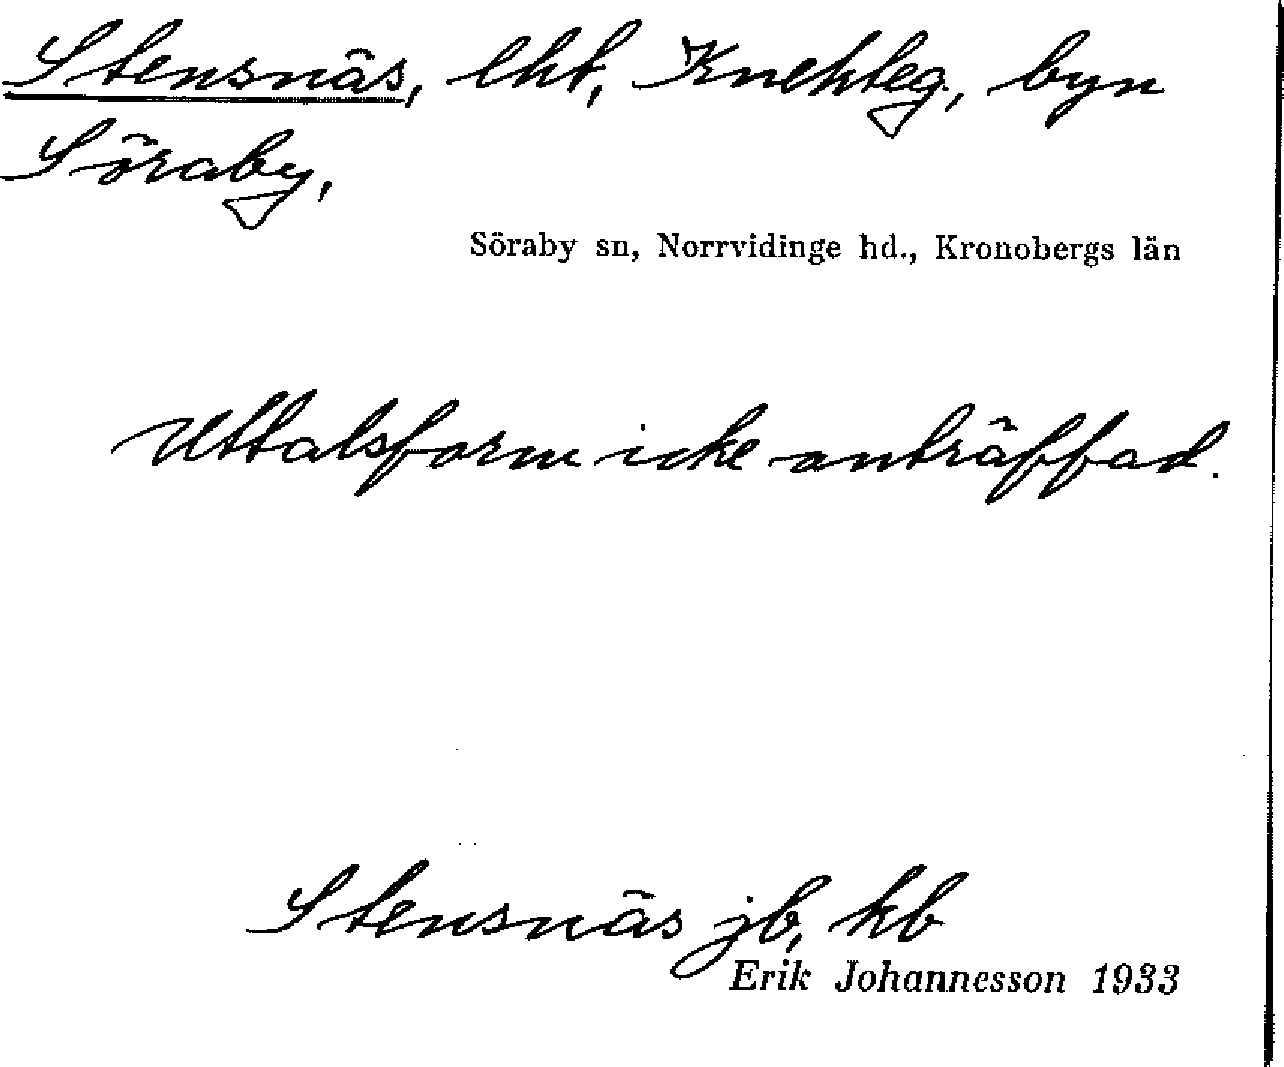 Stensnäs, lht, Knekteg, byn
Söraby,
Söraby sn, Norrvidinge hd., Kronobergs län
Uttalsform icke anträffad.
Stensnäs jb, kb
Erik Johannesson 1933